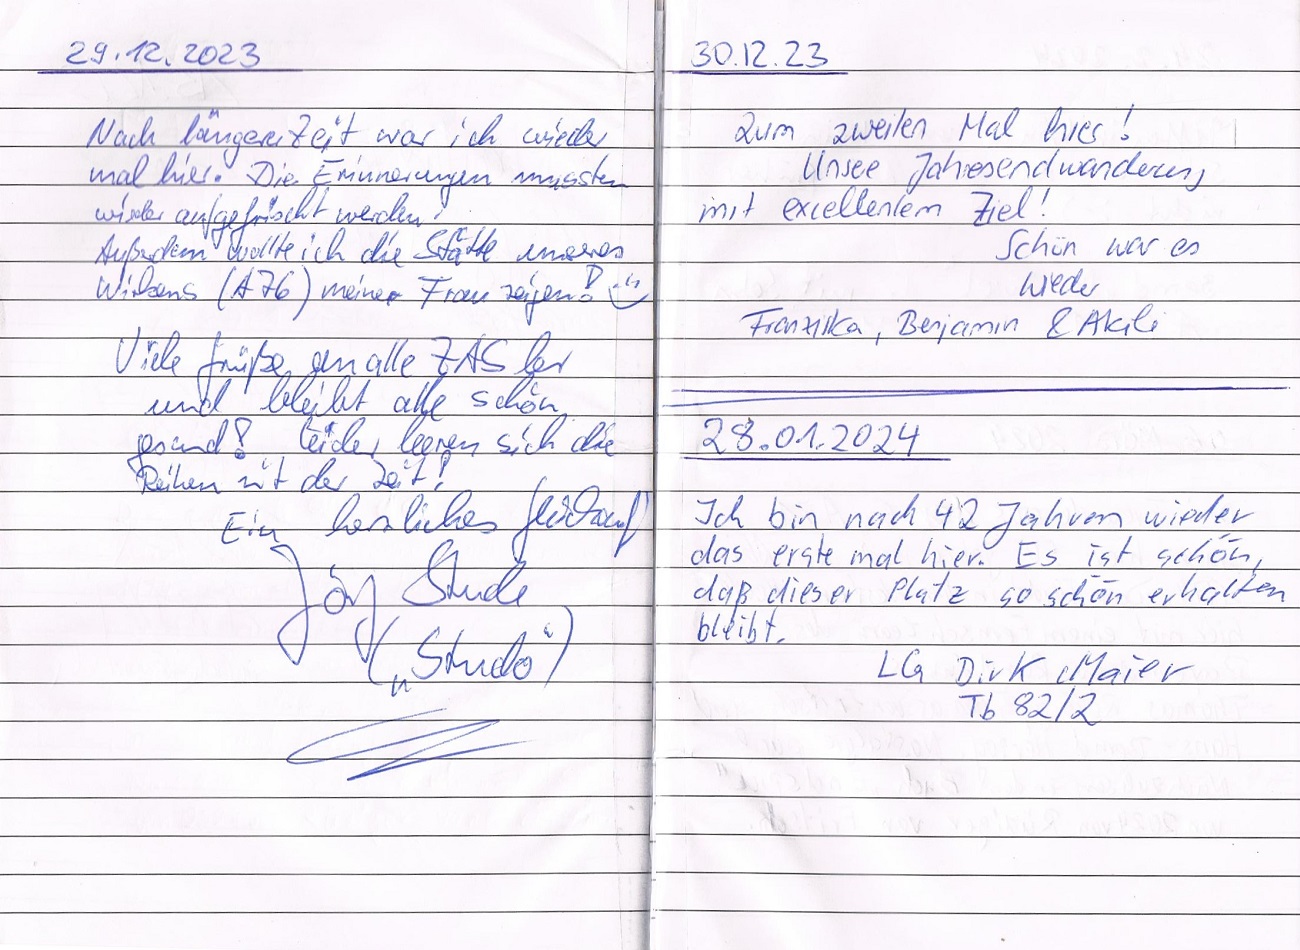 29.12.2023
Nach längerer Zeit war ich wieder
mal hier. Die Erinnerungen mussten
wieder aufgefrischt werden!
Außerdem wollte ich die Stätte unseres
Wirkens (A76) meiner Frau zeigen!
Viele Grüße an alle ZAS ler
und bleibt alle schön
gesund! Leider leeren sich die
Reihen mit der Zeit!
Ein herzliches Glückauf
Jörg Stude
("Studo")
30.12.23
Zum zweiten Mal hier!
Unsere Jahresendwanderung
mit excellentem Ziel!
Schön war es
wieder
Franziska, Benjamin & Akili
28.01.2024
Ich bin nach 42 Jahren wieder
das erste mal hier. Es ist schön,
daß dieser Platz so schön erhalten
bleibt.
LG Dirk Maier
Tb 82/2